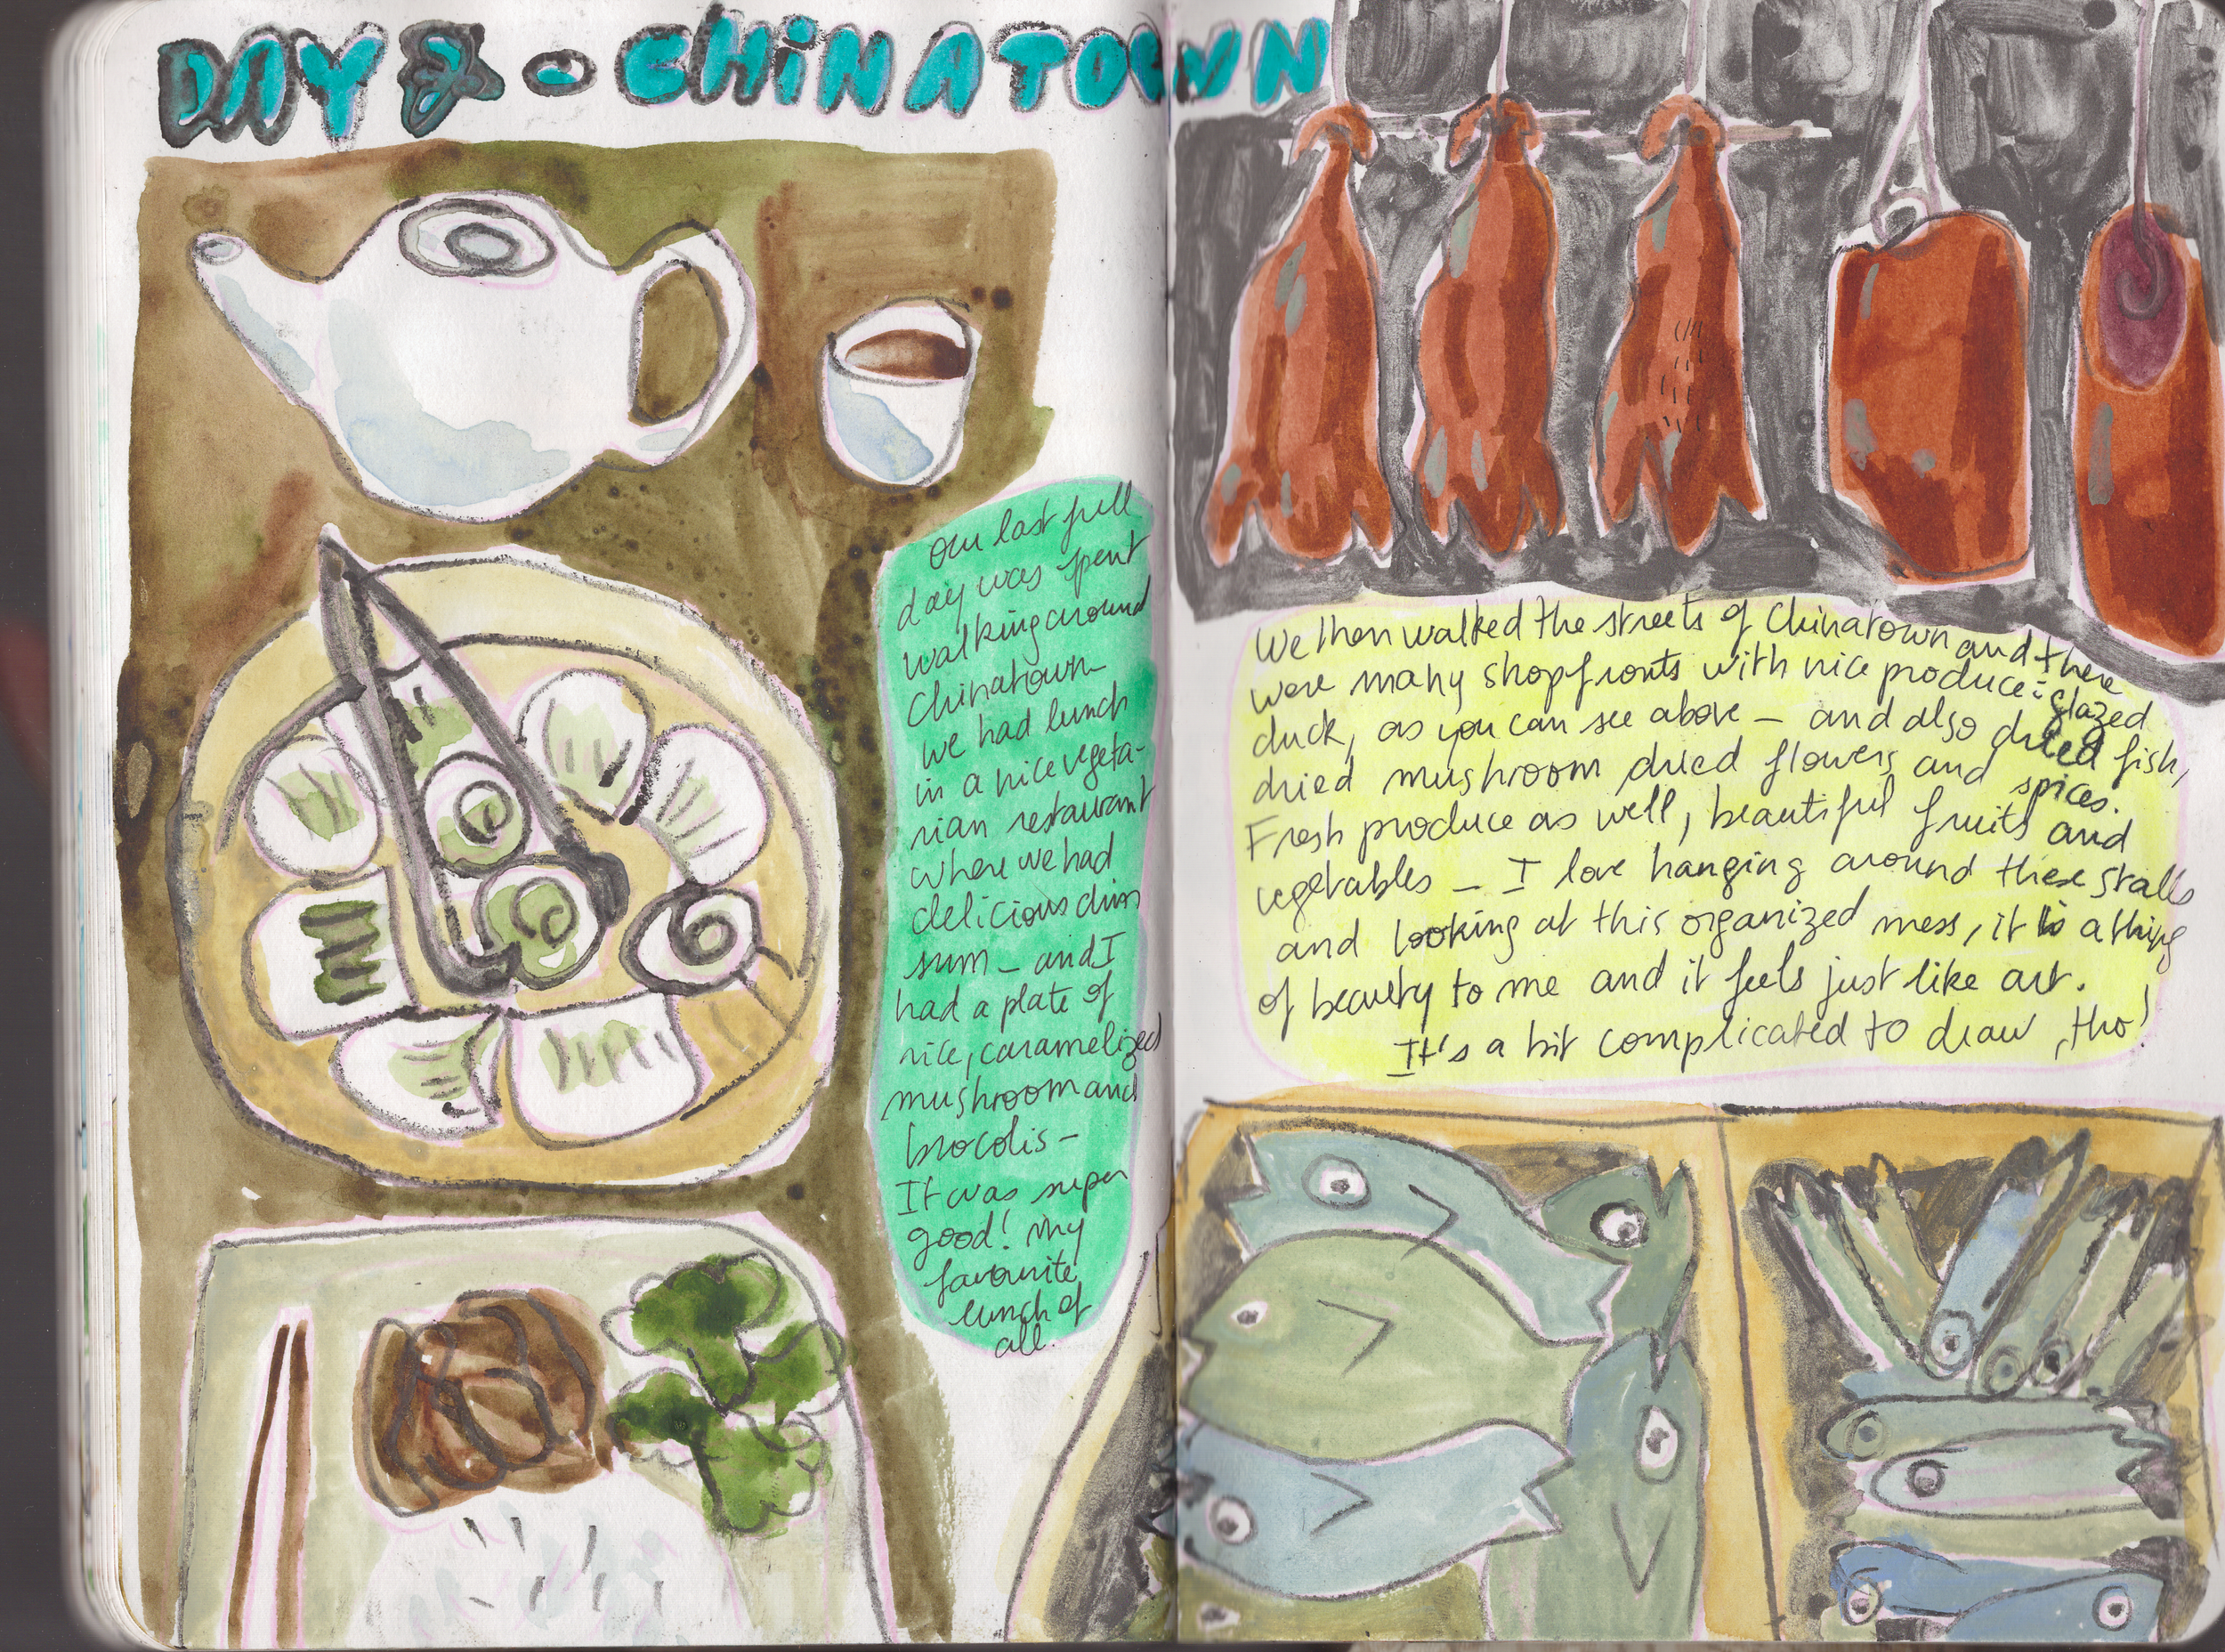 DAY - CHiNATOWN
Our last full
day was spent
walking around
Chinatown_
we had lunch
in a nice vegeta-
rian restaurant
where we had
delicious dim
sum _ and I
had a plate of
rice, caramelized
mushroom and
brocolis -
It was super
good! my
favourite
lunch of
all.
We then walked the streets of Chinatown and there
were many shopfronts with nice produce: glazed
duck, as you can see above _ and also dried fish,
dried mushroom, dried flowers and spices.
Fresh produce as well, beautiful fruits and
vegetables _ I love hanging around these stalls
and looking at this organized mess, it is a thing
of beauty to me and it feels just like art.
It's a bit complicated to draw, tho!